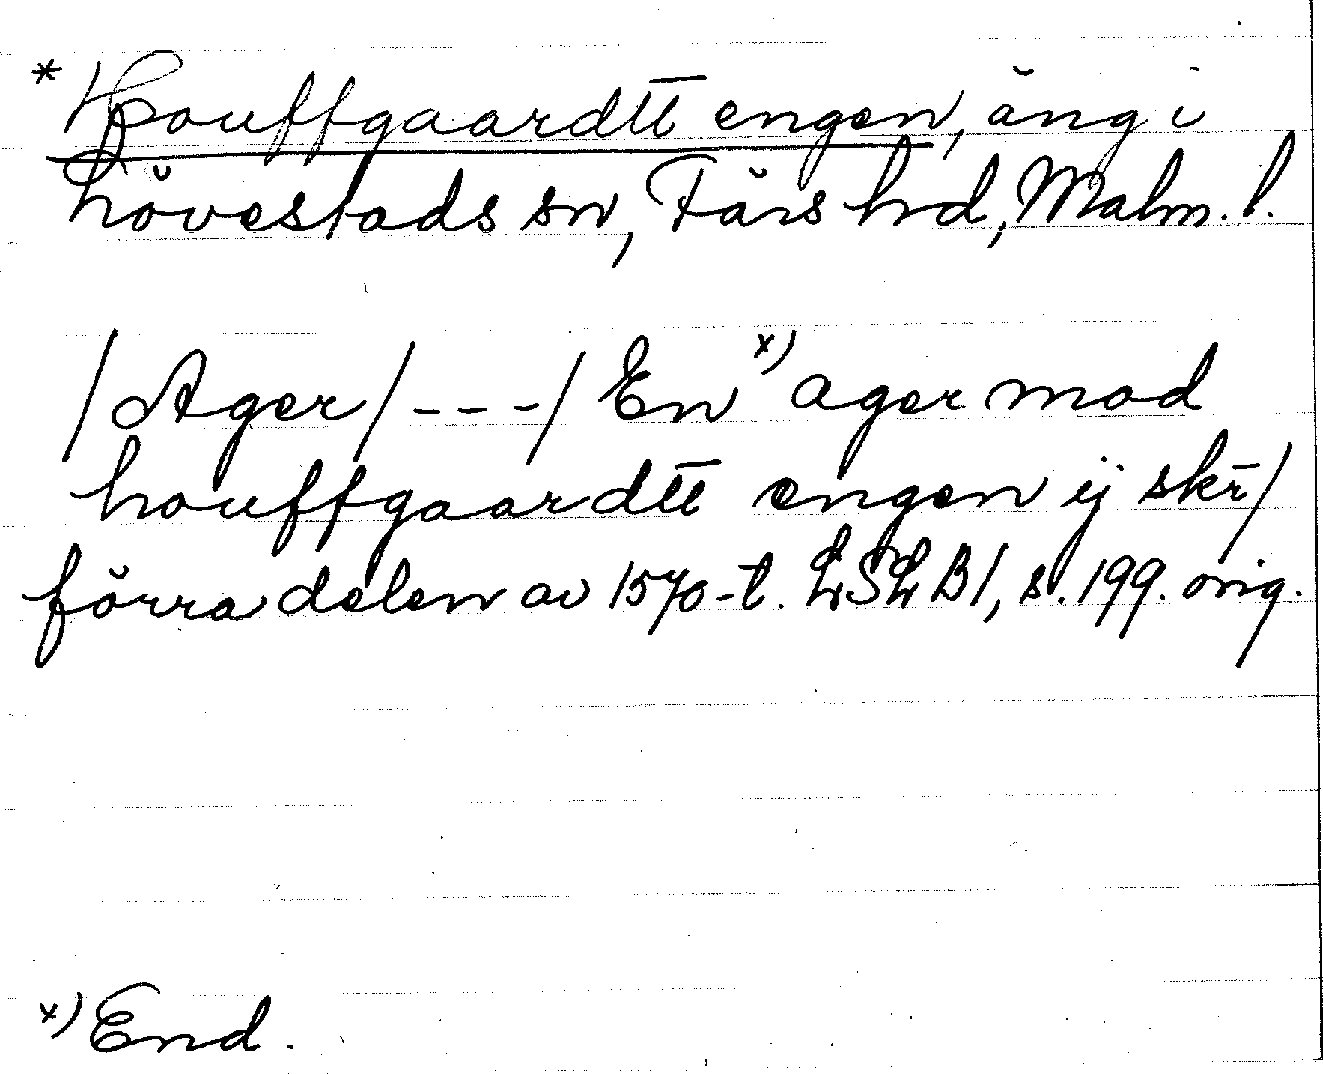 * Houffgaardtt engen, äng i
hövestads sn, Färs hrd, Malm. l.
/Ager/---/ En x) ager mod
houffgaardtt engen ij skr̄/
förra delen av 1570-t. LSLB1, s. 199. orig.
x) End.